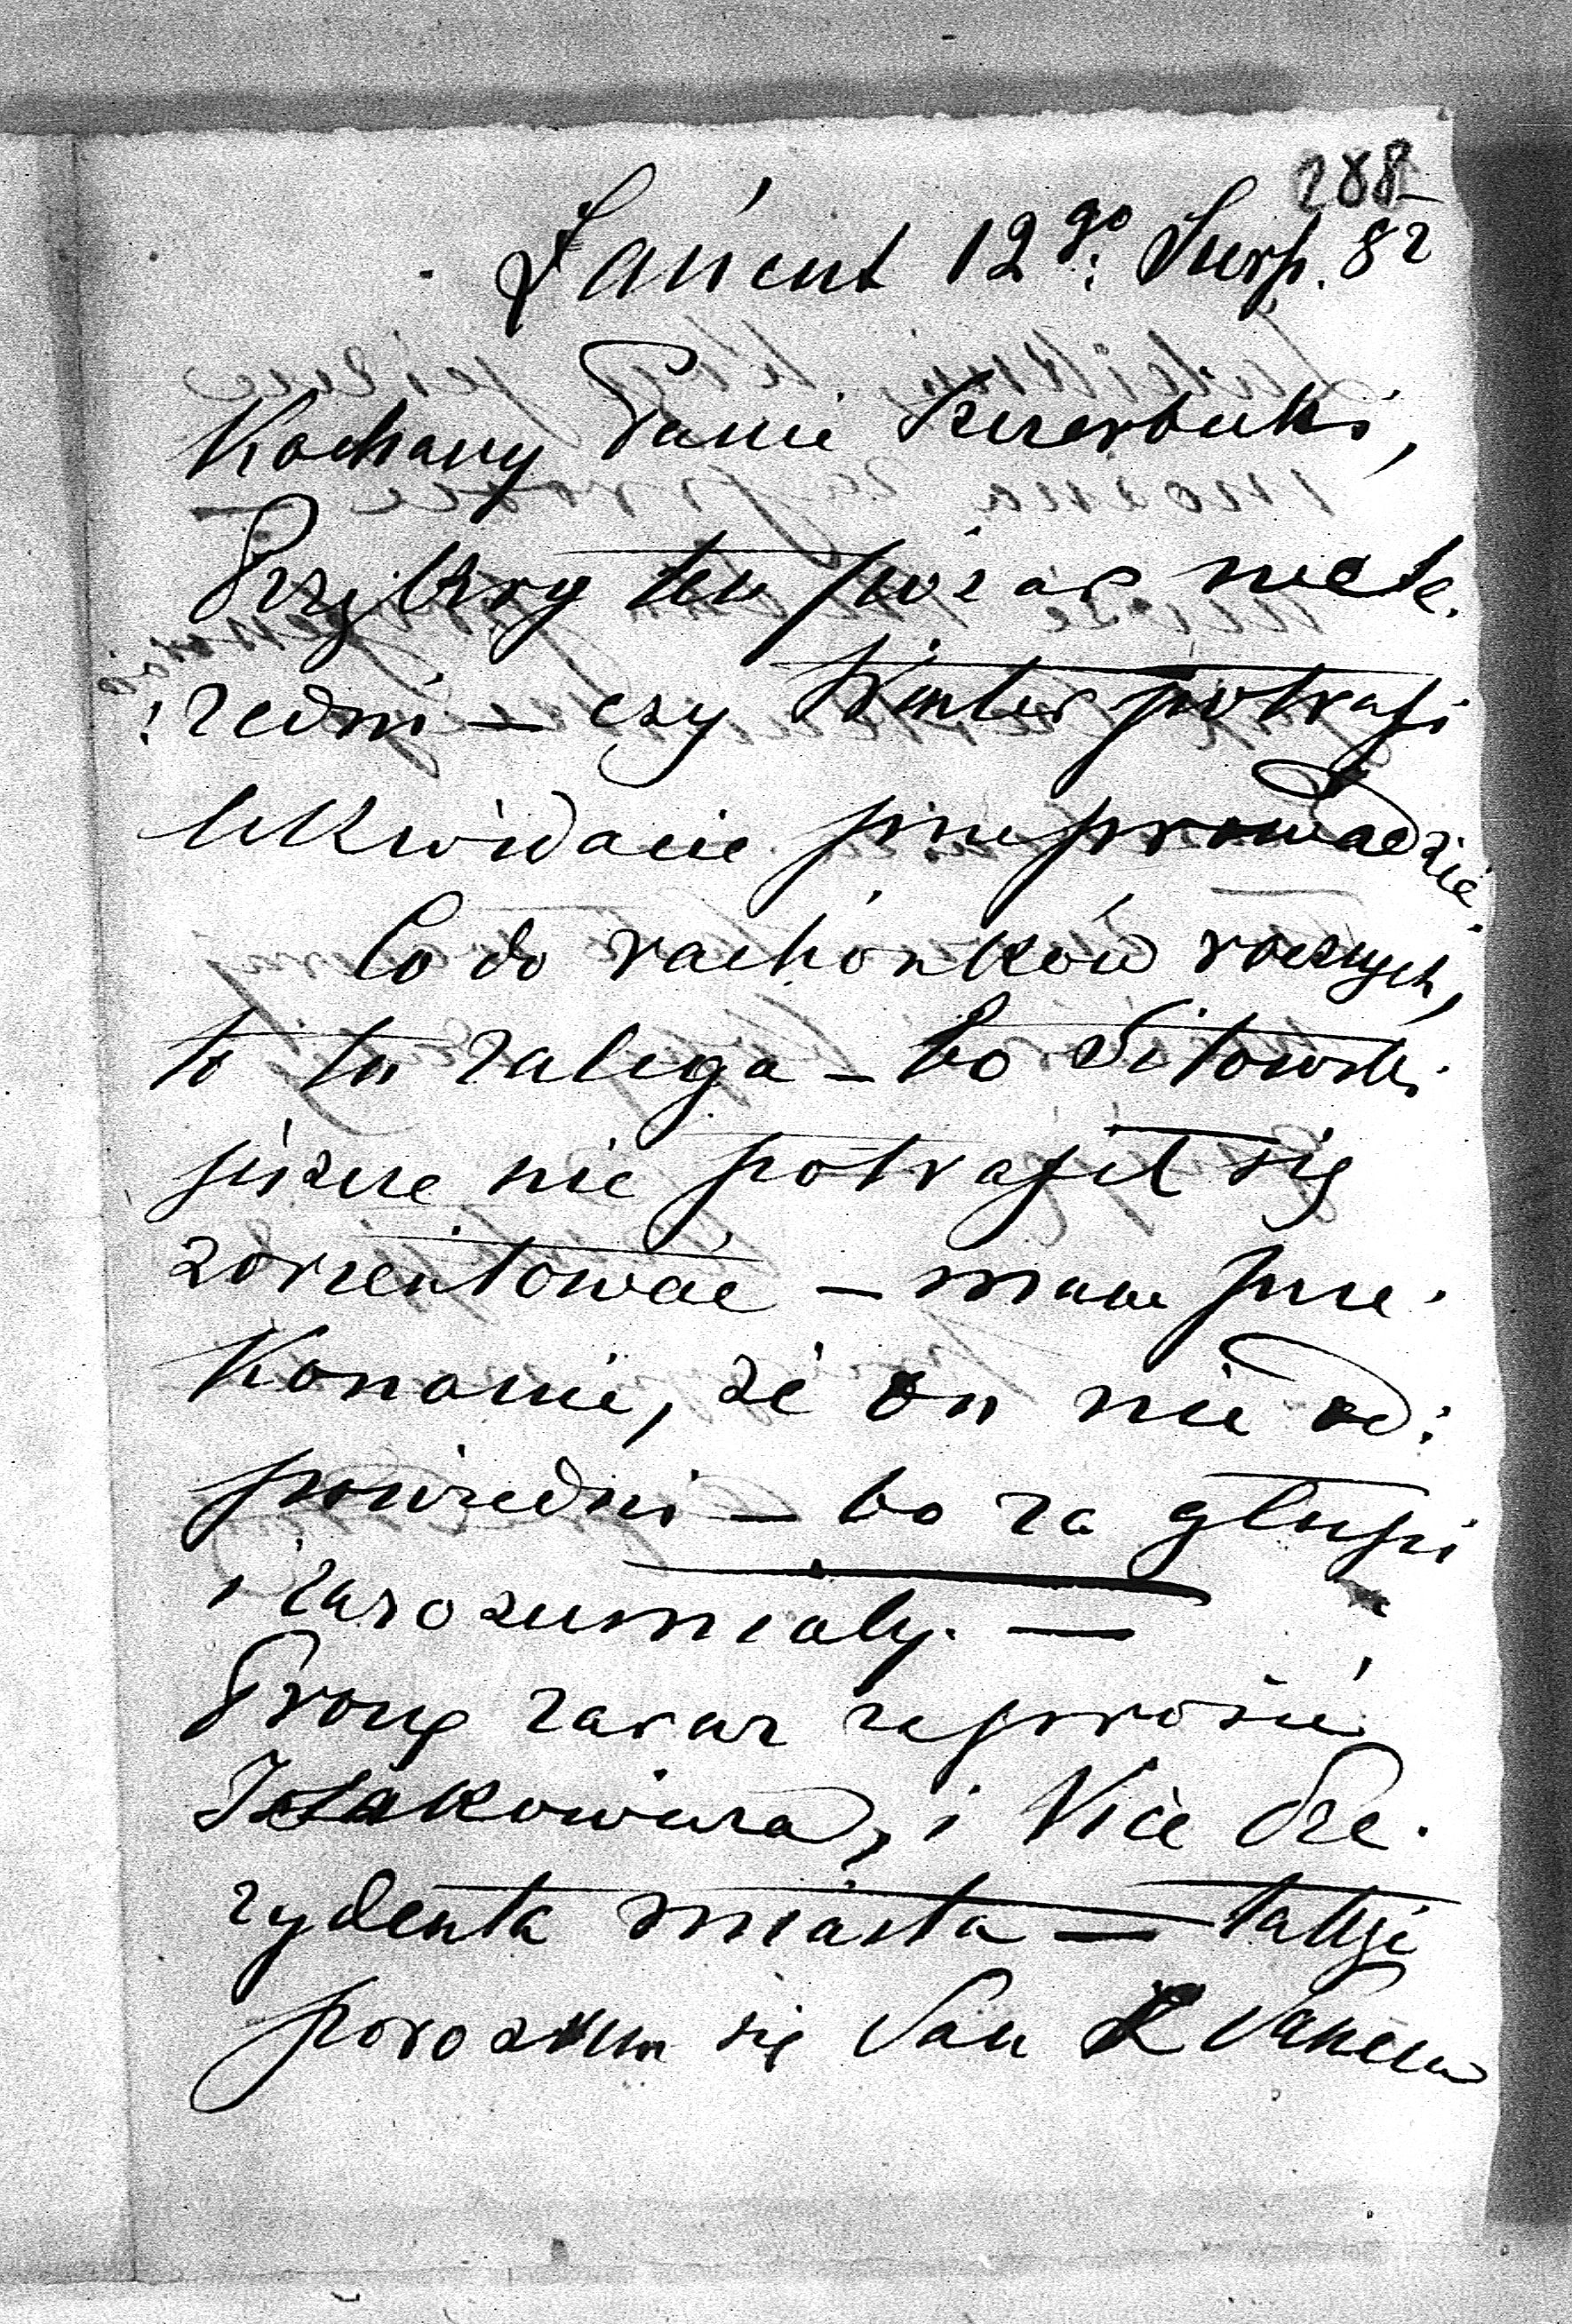 288
Łańcut 12go Sierp. 82
Kochany Panie Szczerbicki,
Przykry ten pożar w
redni — czy potrafi
likwidacie przeprowadzić.
Co do rachónków rocznych,
to tu zalega — bo Sitowski
jeszcze nie potrafił się
zorientować — mam prze-
konanie, że on nie od:
powiedni — bo za głupi
i zarozumiały. —
Proszę zaraz zaprosić
i Vice Pre-
zydenta miasta — także
porozum się Pan z Panem